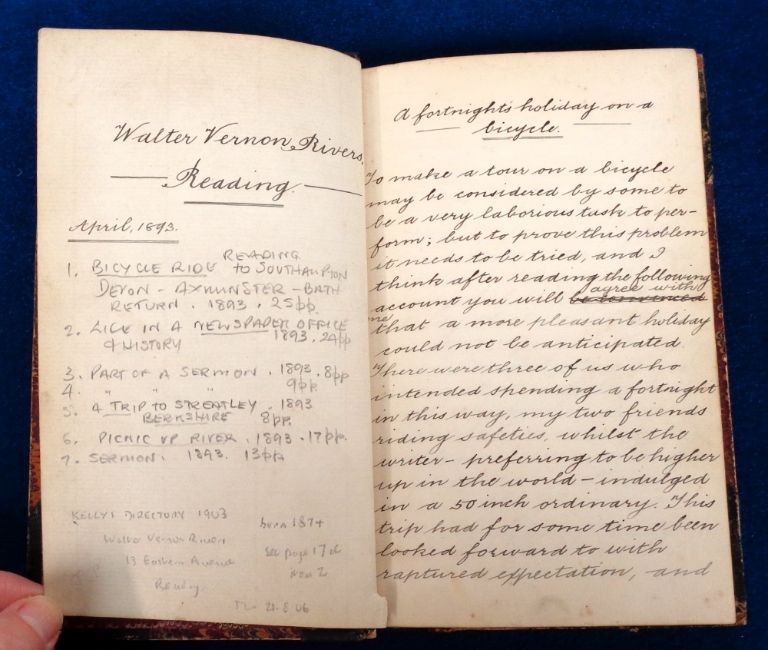 Walter Vernon Rivers.
Reading.
April, 1893.
1. BICYCLE RIDE READING
TO SOUTHAMPTON
DEVON - AXMINSTER - BATH
RETURN . 1893 . 25pp.
2. LIFE IN A NEWSPAPER OFFICE
& HISTORY 1893. 24pp
3. PART OF A SERMON . 1893 . 8pp
4. " " " 9pp.
5. A TRIP TO STREATLEY . 1893
BERKSHIRE 8pp.
6. PICNIC UP RIVER . 1893 . 17pp.
7. SERMON. 1893. 13pp.
KELLY'S DIRECTORY 1903
Walter Vernon Rivers
13 Eastern Avenue
Reading.
born 1874
see page 17 of
item 2
21.8.06
A fortnights holiday on a
bicycle.
To make a tour on a bicycle
may be considered by some to
be a very laborious task to per-
form; but to prove this problem
it needs to be tried, and I
think after reading the following
account you will be convinced agree with
me that a more pleasant holiday
could not be anticipated.
There were three of us who
intended spending a fortnight
in this way, my two friends
riding safeties, whilst the
writer - preferring to be higher
up in the world - indulged
in a 50 inch ordinary. This
trip had for some time been
looked forward to with
raptured expectation, and